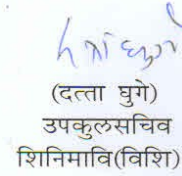 (दत्ता घुगे)
उपकुलसचिव
शिनिमावि(विशि)